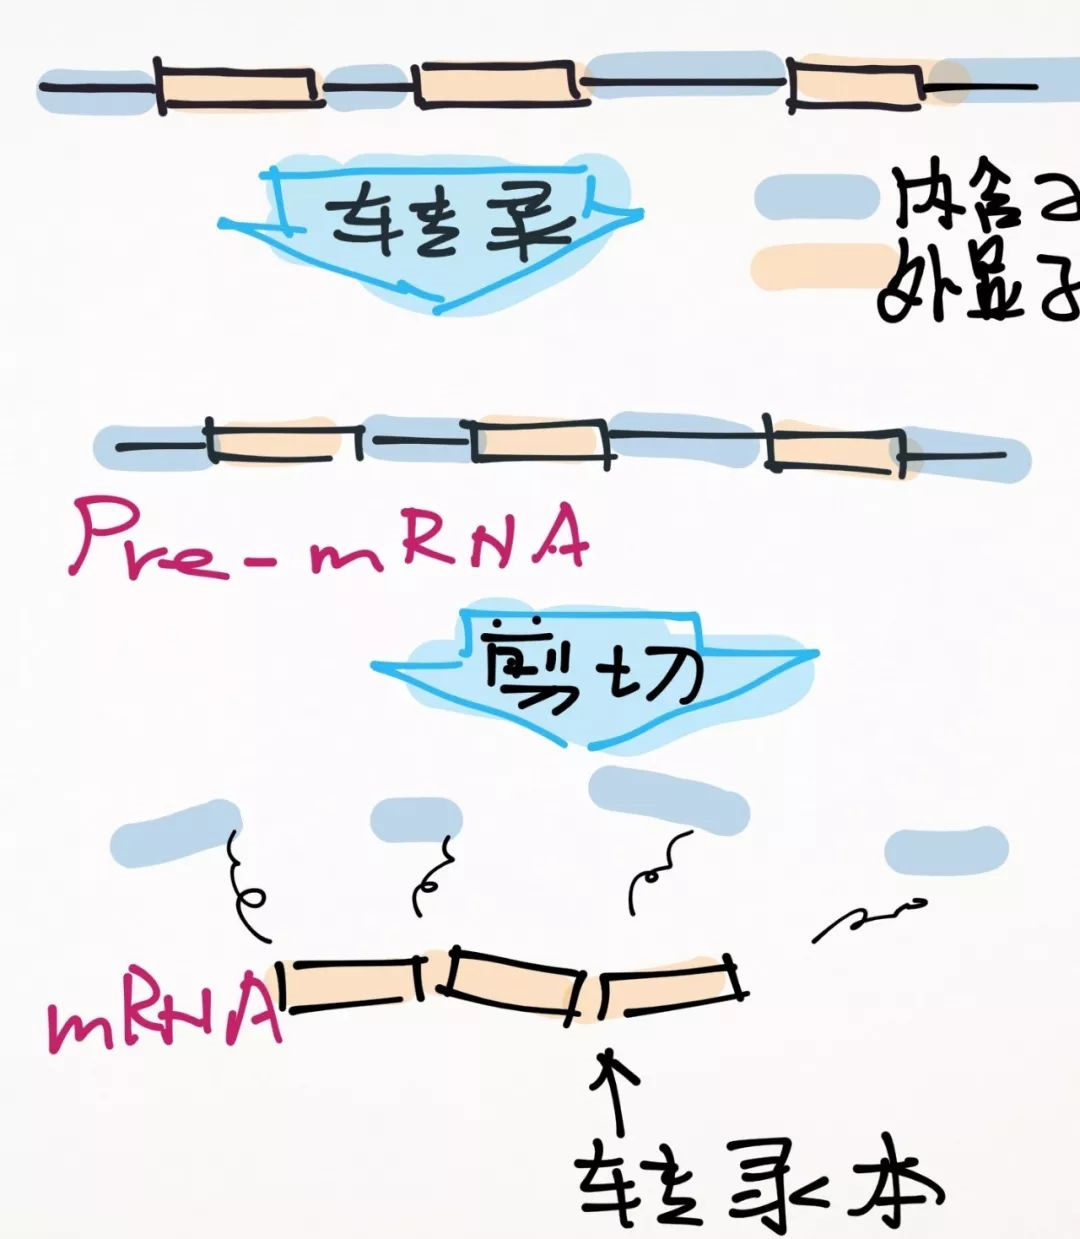 转录
内含子
外显子
Pre-mRNA
剪切
mRNA
转录本